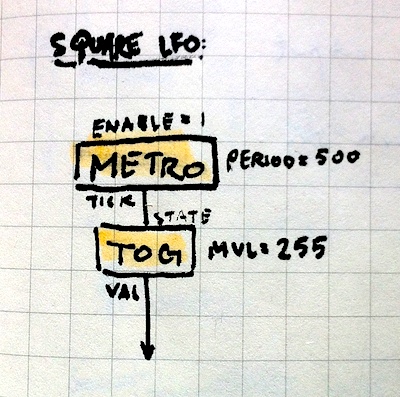 SQUARE LFO:
ENABLE = 1
METRO PERIOD = 500
TICK
STATE
TOG MUL = 255
VAL